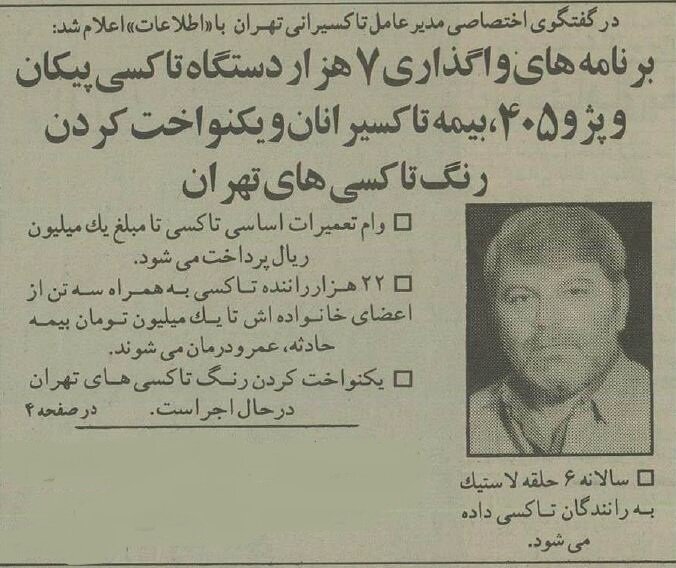 در گفتگوی اختصاصی مدیر عامل تاکسیرانی تهران با «اطلاعات» اعلام شد:
برنامه های واگذاری ۷ هزار دستگاه تاکسی پیکان
و پژو ۴۰۵، بیمه تاکسیرانان و یکنواخت کردن
رنگ تاکسی های تهران
□ وام تعمیرات اساسی تاکسی تا مبلغ یك میلیون
ریال پرداخت می شود.
□ ۲۲ هزار راننده تاکسی به همراه سه تن از
اعضای خانواده اش تا یك میلیون تومان بیمه
حادثه، عمر و درمان می شوند.
□ یکنواخت کردن رنگ تاکسی های تهران
در حال اجر است. در صفحه ۴
□ سالانه ۶ حلقه لاستیك
به رانندگان تاکسی داده
می شود.